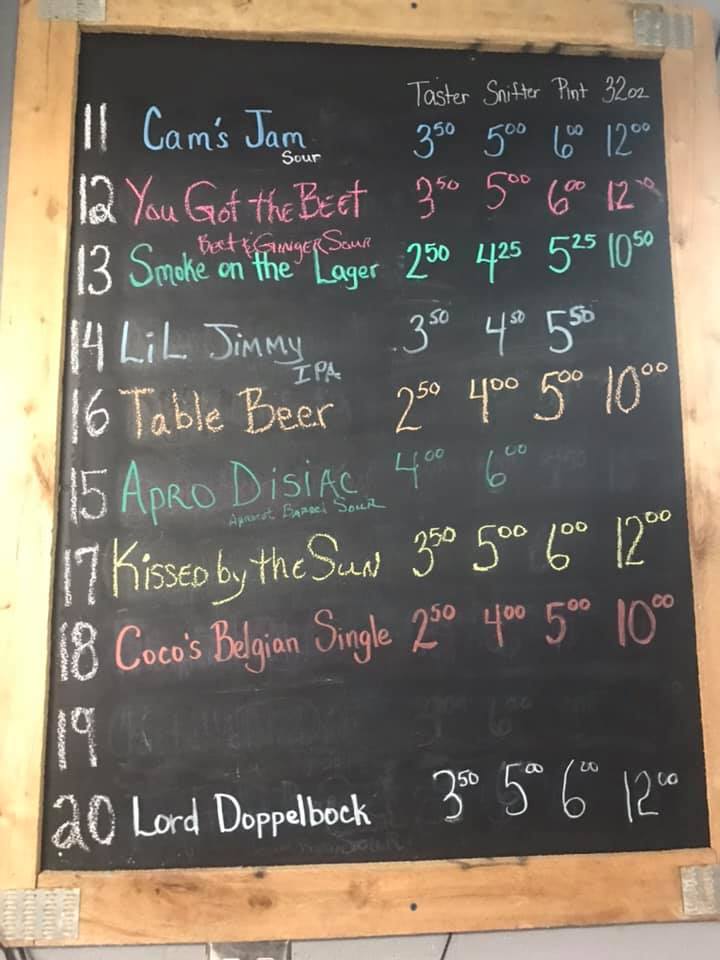 Taster Snifter Pint 32oz
11 Cam's Jam 350 500 600 1200
Sour
12 You Got the Beet 350 500 600 12
Beet & Ginger Sour
13 Smoke on the Lager 250 425 525 1050
14 LiL Jimmy 350 450 550
IPA
16 Table Beer 250 400 500 1000
15 Apro Disiac 400 600
Apricot Barrel Sour
17 Kissed by the Sun 350 500 600 1200
18 Coco's Belgian Single 250 400 500 1000
19
20 Lord Doppelbock 350 500 600 1200